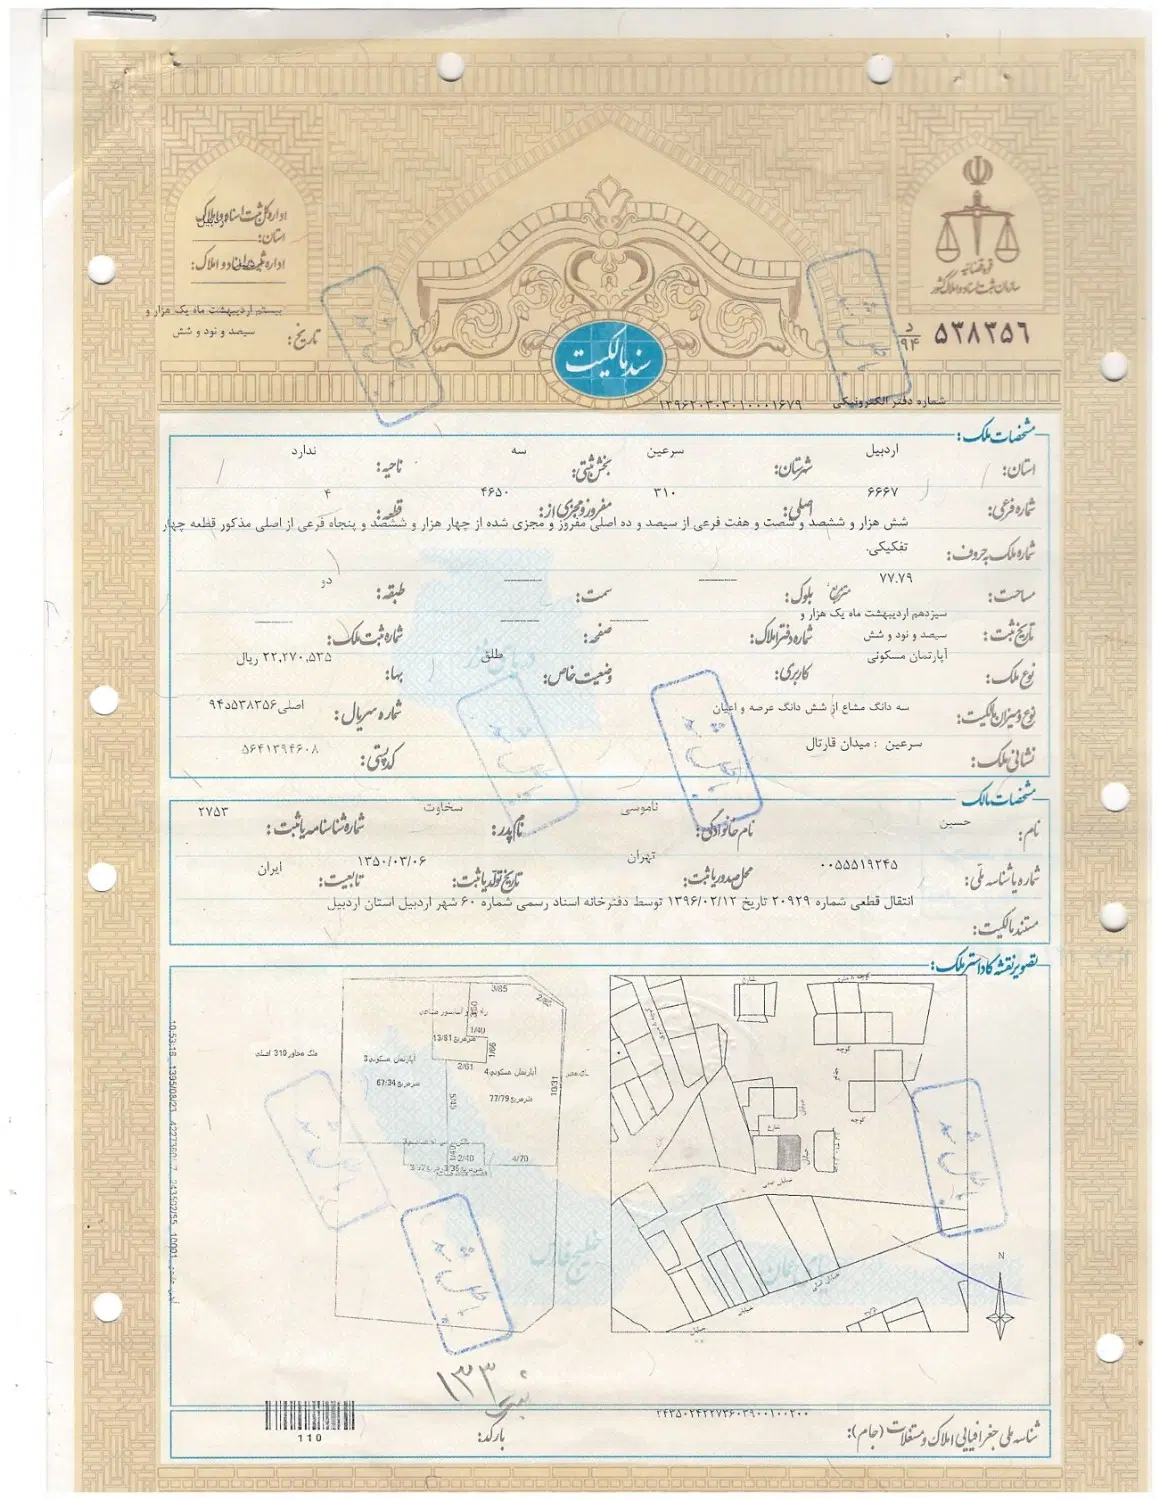 قوه قضائیه
سازمان ثبت اسناد و املاک کشور
۵۳۸۳۵۶ د ۹۴
اداره کل ثبت اسناد و املاک
استان: اردبیل
اداره ثبت اسناد و املاک:
تاریخ: بیستم اردیبهشت ماه یک هزار و
سیصد و نود و شش
سند مالکیت
شماره دفتر الکترونیکی ۱۳۹۶۲۰۳۰۳۰۱۰۰۰۱۶۷۹
مشخصات ملک:
استان: اردبیل شهرستان: سرعین بخش ثبتی: سه ناحیه: ندارد
شماره فرعی: ۶۶۶۷ اصلی: ۳۱۰ مفروز و مجزی از: ۴۶۵۰ قطعه: ۴
شماره ملک به حروف: شش هزار و ششصد و شصت و هفت فرعی از سیصد و ده اصلی مفروز و مجزی شده از چهار هزار و ششصد و پنجاه فرعی از اصلی مذکور قطعه چهار
تفکیکی.
مساحت: ۷۷.۷۹ متر مربع بلوک: ---------- سمت: ---------- طبقه: دو
تاریخ ثبت: سیزدهم اردیبهشت ماه یک هزار و
سیصد و نود و شش شماره دفتر املاک: ---------- صفحه: ---------- شماره ثبت ملک: ----------
نوع ملک: آپارتمان مسکونی کاربری: وضعیت خاص: طلق بها: ۲۲,۲۷۰,۵۳۵ ریال
نوع و میزان مالکیت: سه دانگ مشاع از شش دانگ عرصه و اعیان شماره سریال: اصلی۵۳۸۳۵۶د۹۴
نشانی ملک: سرعین : میدان قارتال کد پستی: ۵۶۴۱۳۹۴۶۰۸
مشخصات مالک
نام: حسین نام خانوادگی: ناموسی نام پدر: سخاوت شماره شناسنامه یا ثبت: ۲۷۵۳
شماره یا شناسه ملی: ۰۰۵۵۵۱۹۲۴۵ محل صدور یا ثبت: تهران تاریخ تولد یا ثبت: ۱۳۵۰/۰۳/۰۶ تابعیت: ایران
مستند مالکیت: انتقال قطعی شماره ۲۰۹۲۹ تاریخ ۱۳۹۶/۰۲/۱۲ توسط دفترخانه اسناد رسمی شماره ۶۰ شهر اردبیل استان اردبیل
تصویر نقشه کاداستر ملک:
3/85
1/40
13/81 مترمربع
1/66
2/61
ملک مجاور 310 اصلی
آپارتمان مسکونی 3
67/34 مترمربع
آپارتمان مسکونی 4
77/79 مترمربع
10/31
5/45
2/40
4/70
کوچه
کوچه
N
دریای خزر
خلیج فارس
دریای عمان
باطل شد
باطل شد
باطل شد
باطل شد
باطل شد
باطل شد
باطل شد
ثبت ۱۳۳
بارکد:
110
شناسه ملی جغرافیایی املاک و مستغلات (جام):
۲۴۳۵۰۲۴۲۲۷۳۶۰۳۹۰۰۱۰۰۲۰۰